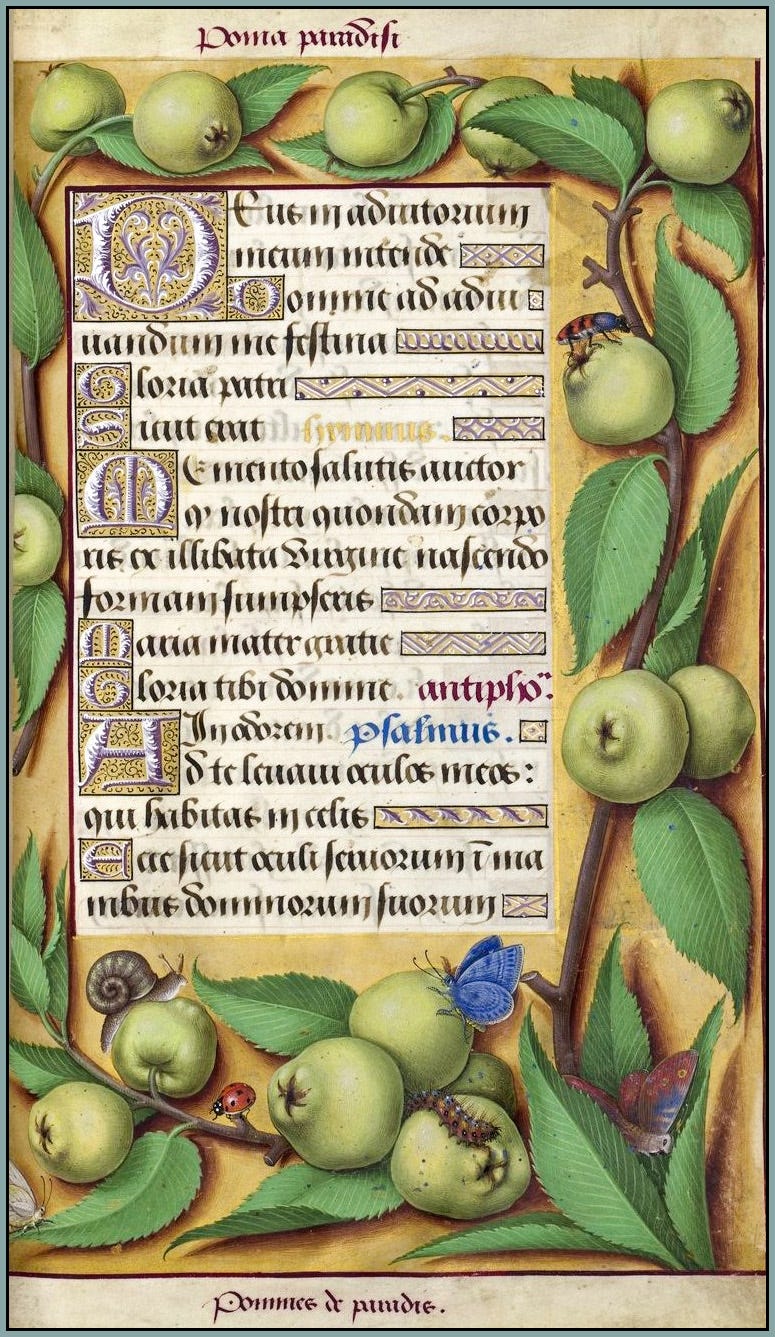 Poma paradisi
Deus in adiutorium
meum intende
Domine ad adiu
uandum me festina
Gloria patri
Sicut erat hymnus.
Memento salutis auctor
qꝫ nostri quondam corpo
ris ex illibata Virgine nascendo
formam sumpseris
Maria mater gratie
Gloria tibi domine. antipho.
In odorem psalmus.
Ad te leuaui oculos meos :
qui habitas in celis
Ecce sicut oculi seruorum ī ma
nibus dominorum suorum
Pommes de paradis.